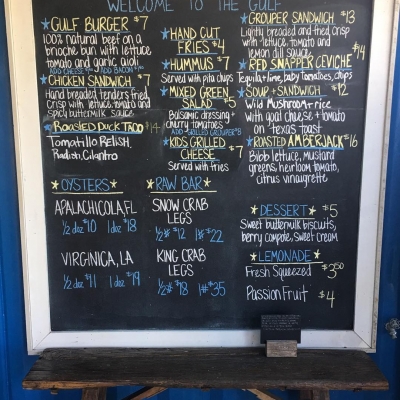 WELCOME TO THE GULF
★GULF BURGER $7
100% natural beef on a
brioche bun with lettuce
tomato and garlic aioli
ADD CHEESE ADD BACON
★CHICKEN SANDWICH $7
Hand breaded tenders fried
crisp with lettuce, tomato and
spicy buttermilk sauce
★ROASTED DUCK TACO $14
Tomatillo Relish,
Radish, Cilantro
★HAND CUT
FRIES $4
★HUMMUS $7
Served with pita chips
★MIXED GREEN
SALAD $5
Balsamic dressing +
cherry tomatoes
ADD GRILLED GROUPER $8
★KIDS GRILLED
CHEESE $7
Served with fries
★GROUPER SANDWICH $13
Lightly breaded and fried crisp
with lettuce, tomato and
lemon dill sauce
★RED SNAPPER CEVICHE $14
Tequila + lime, baby tomatoes, chips
★SOUP + SANDWICH $12
Wild Mushroom + rice
with goat cheese + tomato
on Texas toast
★ROASTED AMBERJACK $16
Bibb lettuce, mustard
greens, heirloom tomato,
citrus vinaigrette
★OYSTERS★
APALACHICOLA, FL
1/2 doz $10 1 doz $18
VIRGINICA, LA
1/2 doz $11 1 doz $19
★RAW BAR★
SNOW CRAB
LEGS
1/2# $12 1# $22
KING CRAB
LEGS
1/2# $18 1# $35
★DESSERT★ $5
Sweet buttermilk biscuits,
berry compote, sweet cream
★LEMONADE★
Fresh Squeezed $3.50
Passion Fruit $4